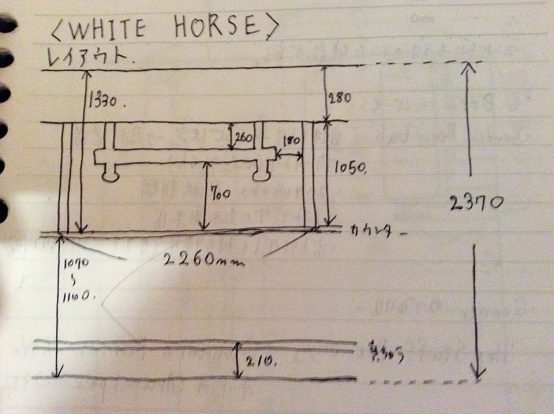 〈WHITE HORSE〉
レイアウト.
1330.
280
260
180
1050.
700
2370
カウンター
2260mm
1070
〜
1100.
210.